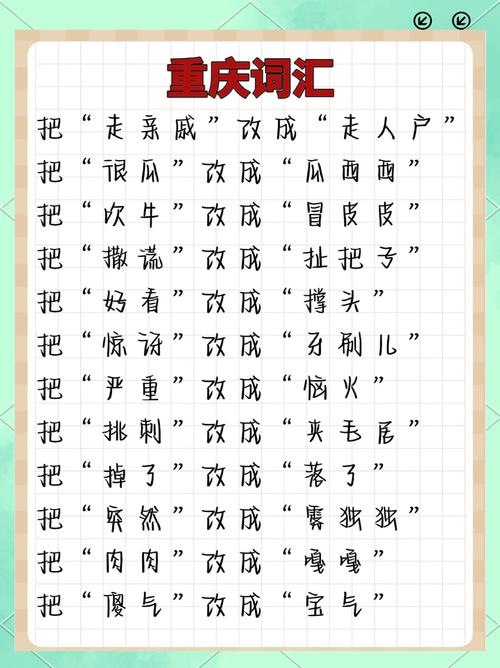 重庆词汇
把“走亲戚”改成“走人户”
把“很瓜”改成“瓜西西”
把“吹牛”改成“冒皮皮”
把“撒谎”改成“扯把子”
把“好看”改成“撑头”
把“惊讶”改成“牙刷儿”
把“严重”改成“恼火”
把“挑刺”改成“夹毛居”
把“掉了”改成“落了”
把“突然”改成“雾独独”
把“肉肉”改成“嘎嘎”
把“傻气”改成“宝气”